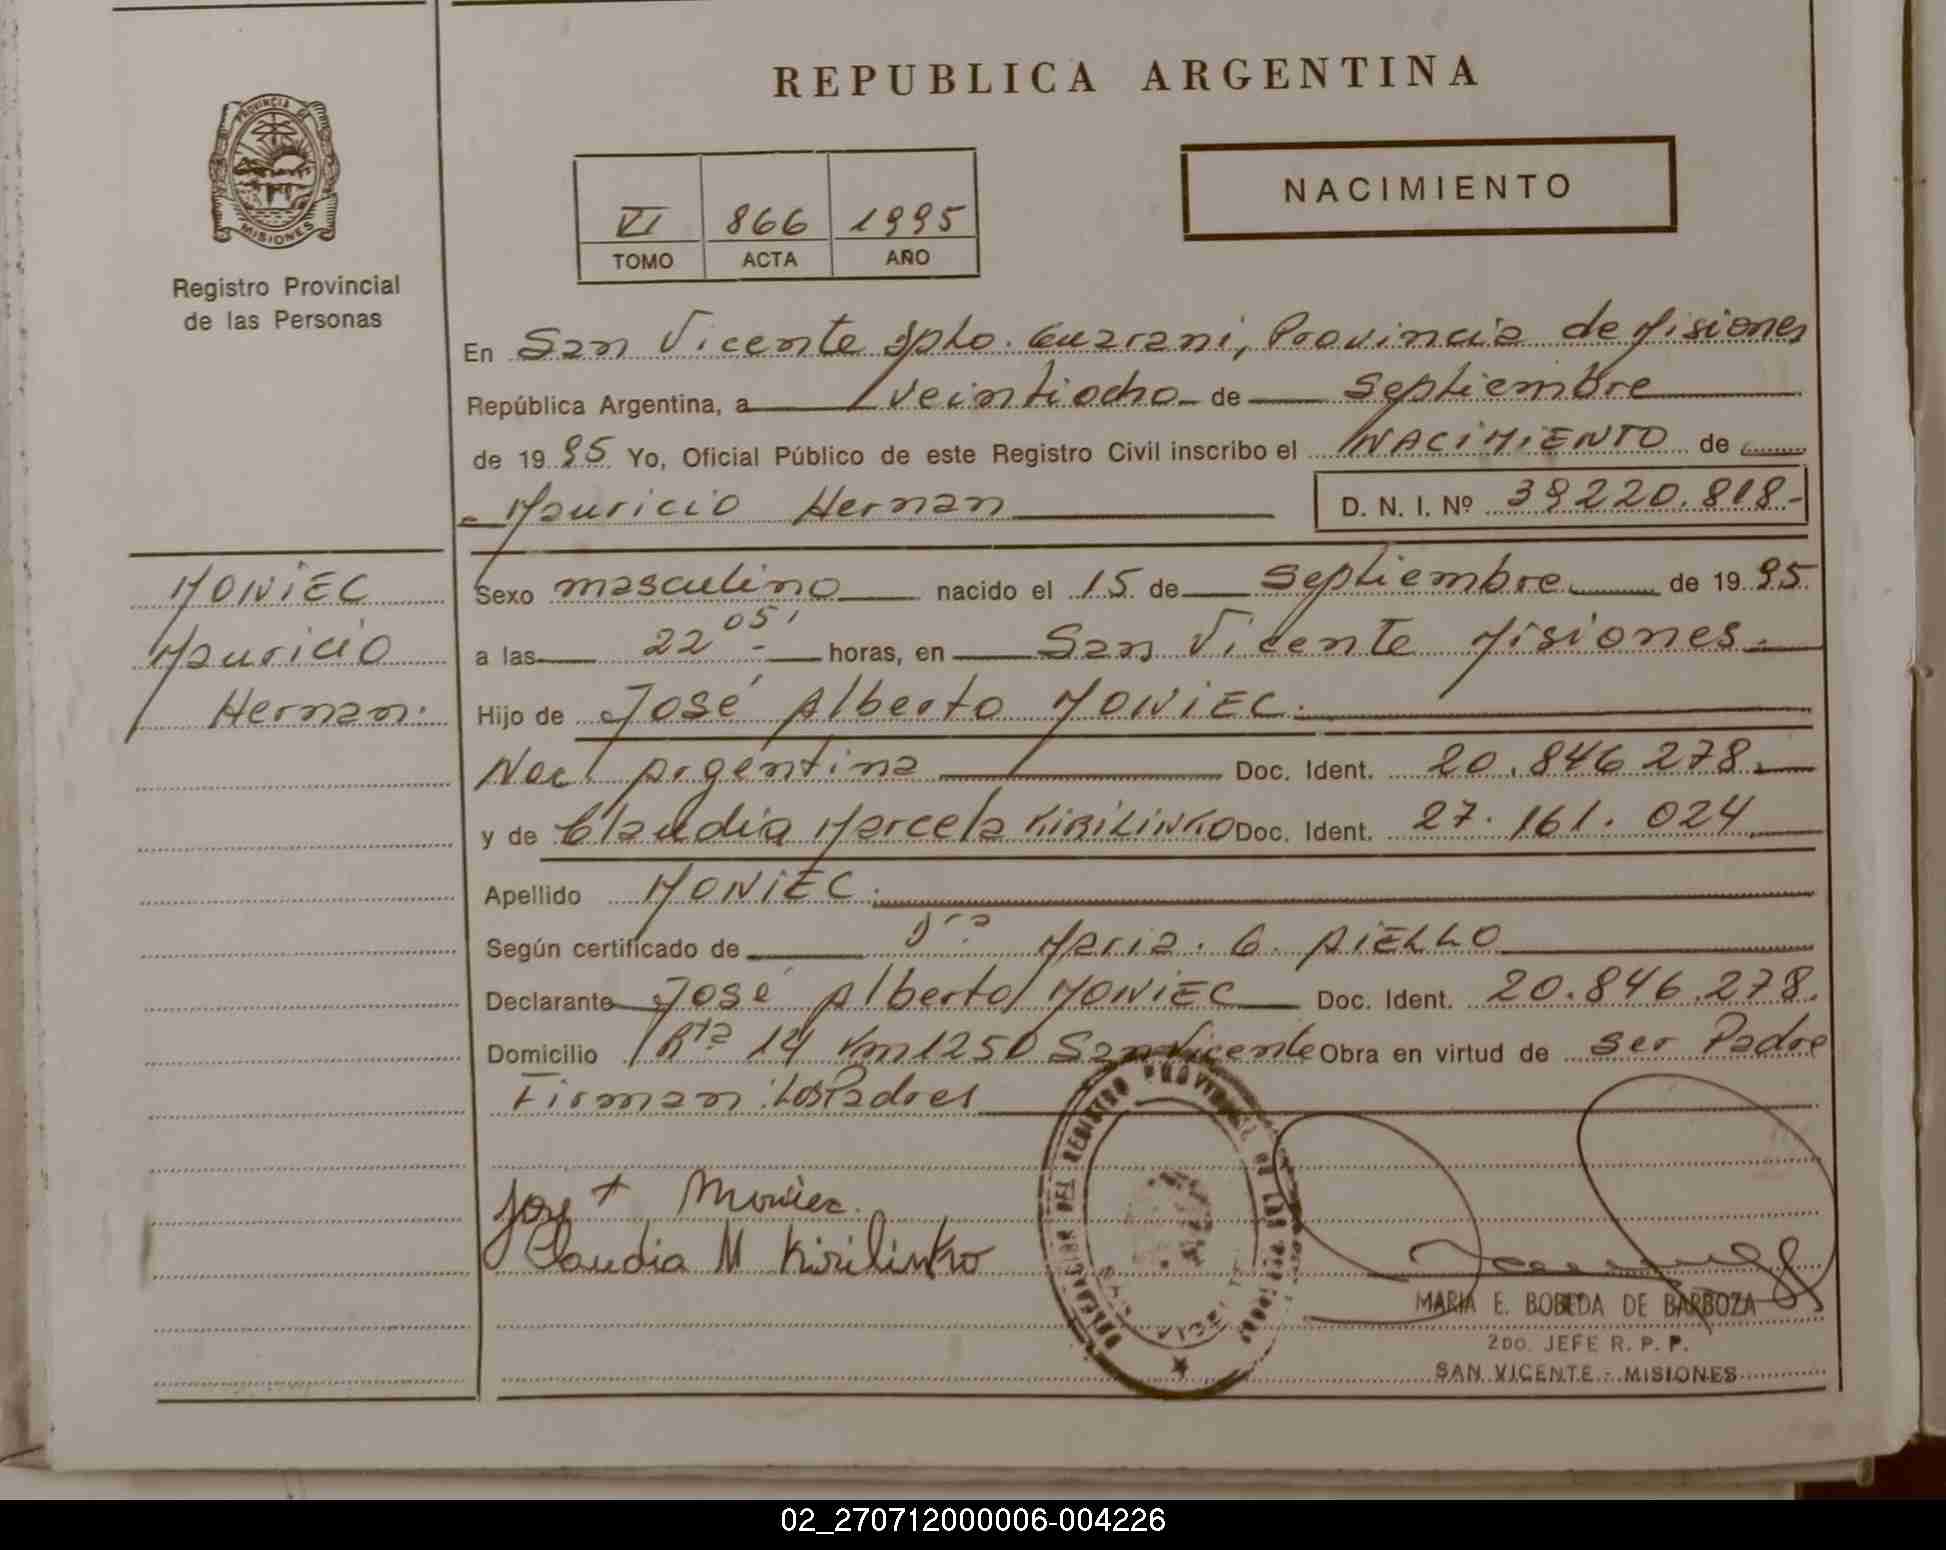 REPUBLICA ARGENTINA
PROVINCIA DE
MISIONES
Registro Provincial
de las Personas
NACIMIENTO
VI 866 1995
TOMO ACTA AÑO
En San Vicente Dpto. Guarani, Provincia de Misiones
República Argentina, a veintiocho de Septiembre
de 1995 Yo, Oficial Público de este Registro Civil inscribo el NACIMIENTO de
Mauricio Hernan D. N. I. Nº 39220.818-
MONIEC
Mauricio
Hernan.
Sexo masculino nacido el 15 de Septiembre de 1995.
a las 22 05' horas, en San Vicente Misiones.
Hijo de José Alberto MONIEC.
Nac argentina Doc. Ident. 20.846 278.
y de Claudia Marcela KIRILINKO Doc. Ident. 27.161.024
Apellido MONIEC.
Según certificado de Dra Maria. G. AIELLO
Declarante José Alberto MONIEC Doc. Ident. 20.846.278.
Domicilio Rta 14 Km 1250 San Vicente Obra en virtud de ser Padre
Firman: Los Padres
Moniec.
Claudia M Kirilinko
DELEGACION DEL REGISTRO PROVINCIAL DE LAS PERSONAS
MARIA E. BOBEDA DE BARBOZA
2DO. JEFE R. P. P.
SAN VICENTE - MISIONES
02_270712000006-004226